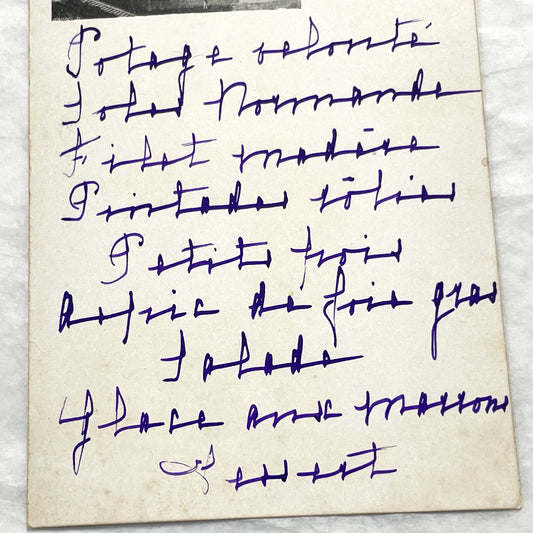 Potage velouté
Soles Normande
Filet madère
Pintades rôties
Petits pois
Aspic de foie gras
Salade
Glace aux marrons
Dessert